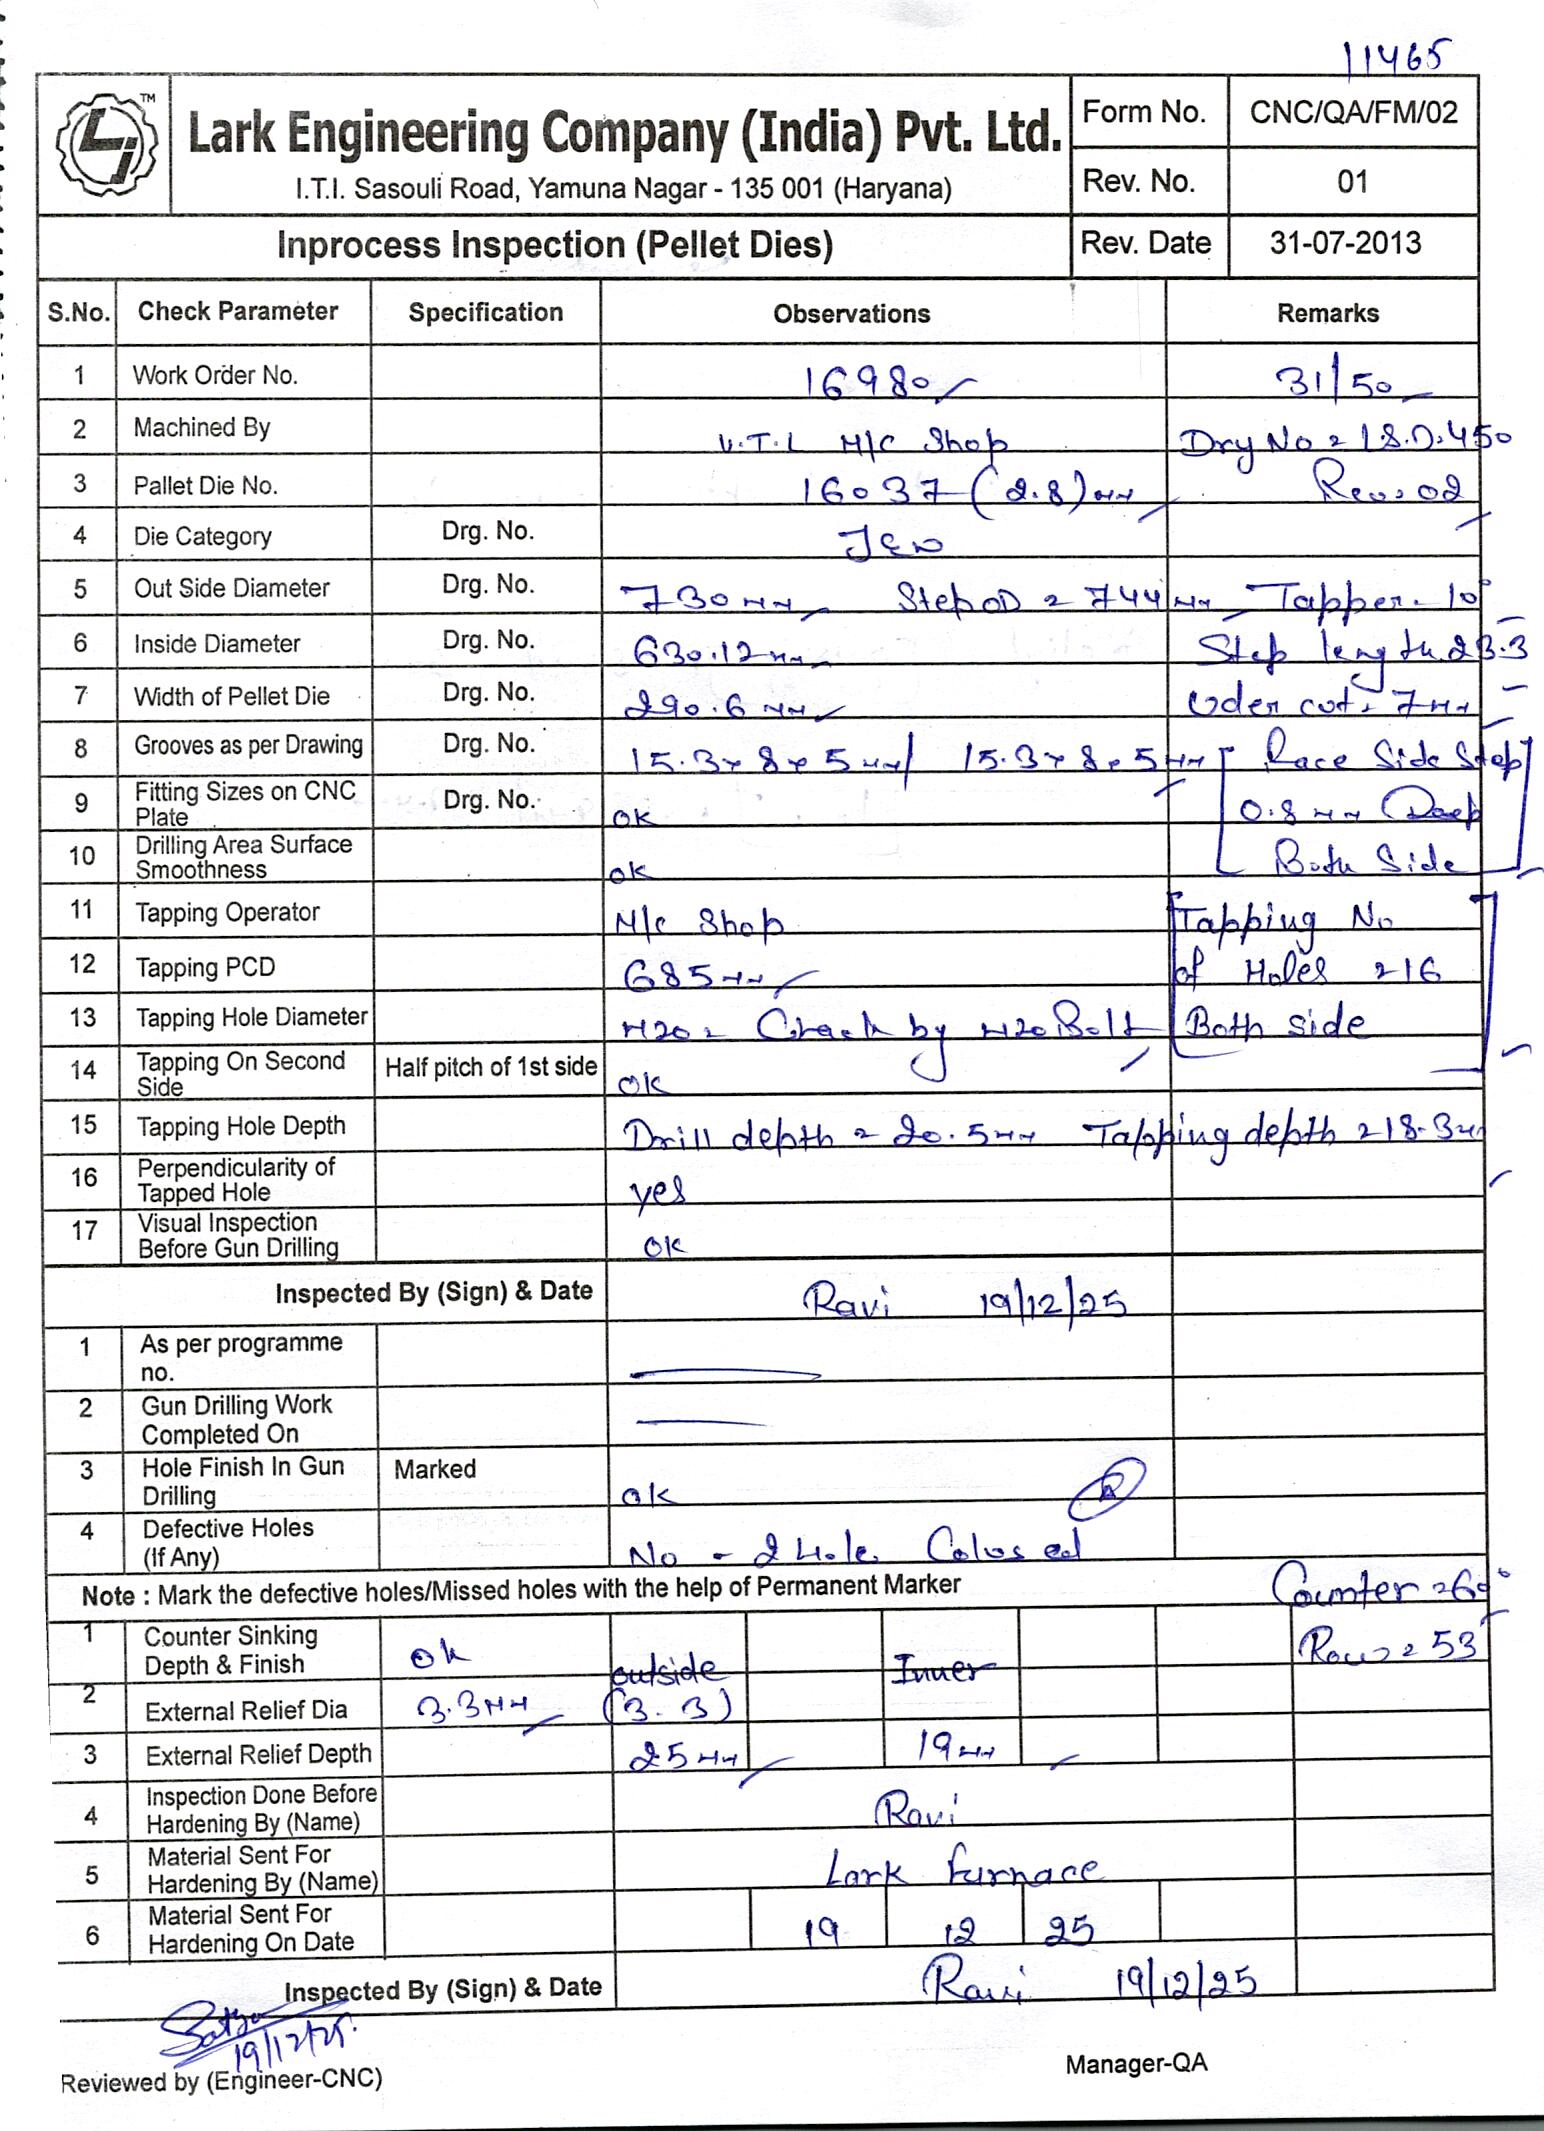 11465
Lark Engineering Company (India) Pvt. Ltd.
I.T.I. Sasouli Road, Yamuna Nagar - 135 001 (Haryana)
Form No. CNC/QA/FM/02
Rev. No. 01
Inprocess Inspection (Pellet Dies) Rev. Date 31-07-2013
S.No. Check Parameter Specification Observations Remarks
1 Work Order No. 16980 31/50
2 Machined By V.T.L M/C Shop Drg No = I.S.O.450
3 Pallet Die No. 16037 (2.8)mm Rev=02
4 Die Category Drg. No.
5 Out Side Diameter Drg. No. 730mm Step OD = 744mm Tapper- 10°
6 Inside Diameter Drg. No. 630.12mm Step length 23.3
7 Width of Pellet Die Drg. No. 290.6mm Uder cut = 7mm
8 Grooves as per Drawing Drg. No. 15.3x8x5mm/ 15.3x8x5mm Race Side Step
9 Fitting Sizes on CNC Plate Drg. No. ok 0.8mm Deep
10 Drilling Area Surface Smoothness ok Both Side
11 Tapping Operator M/c Shop Tapping No
12 Tapping PCD 685mm of Holes =16
13 Tapping Hole Diameter M20 = Check by M20 Bolt Both side
14 Tapping On Second Side Half pitch of 1st side ok
15 Tapping Hole Depth Drill depth = 20.5mm Tapping depth =18.3mm
16 Perpendicularity of Tapped Hole yes
17 Visual Inspection Before Gun Drilling ok
Inspected By (Sign) & Date Ravi 19/12/25
1 As per programme no.
2 Gun Drilling Work Completed On
3 Hole Finish In Gun Drilling Marked ok
4 Defective Holes (If Any) No - 2 Hole Colosed
Note : Mark the defective holes/Missed holes with the help of Permanent Marker Counter =60°
1 Counter Sinking Depth & Finish ok outside Inner Row = 53
2 External Relief Dia 3.3mm (3.3)
3 External Relief Depth 25mm 19mm
4 Inspection Done Before Hardening By (Name) Ravi
5 Material Sent For Hardening By (Name) Lark Furnace
6 Material Sent For Hardening On Date 19 12 25
Inspected By (Sign) & Date Ravi 19/12/25
19/12/25.
Reviewed by (Engineer-CNC) Manager-QA